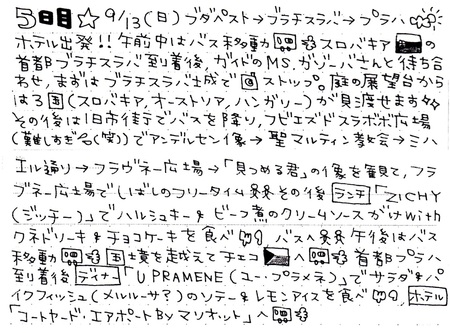 5日目☆ 9/13(日) ブダペスト→ブラチスラバ→プラハ
ホテル出発!! 午前中はバス移動 スロバキア の
首都ブラチスラバ到着後、ガイドのMS.ガゾーバさんと待ち合
わせ、まずはブラチスラバ城で ストップ。庭の展望台から
は3国(スロバキア,オーストリア,ハンガリー)が見渡せます
その後は旧市街でバスを降り、フビエズドスラボボ広場
(難しすぎる(笑))でアンデルセン像→聖マルティン教会→ミハ
エル通り→フラヴネー広場→「見つめる君」の像を観て、フラ
ブネー広場でしばしのフリータイム その後 ランチ 「ZICHY
(ジッチー)」でハルシュキー&ビーフ煮のクリームソースがけwith
クネドリーキ&チョコケーキを食べ バスへ 午後はバス
移動 国境を越えてチェコ へ 首都プラハ
到着後 ディナー 「U PRAMENE(ユー・プラメネ)」でサラダ&パ
イクフィッシュ(メルルーサ?)のソテー&レモンアイスを食べ ,ホテル
「コートヤード・エアポートByマリオット」へ